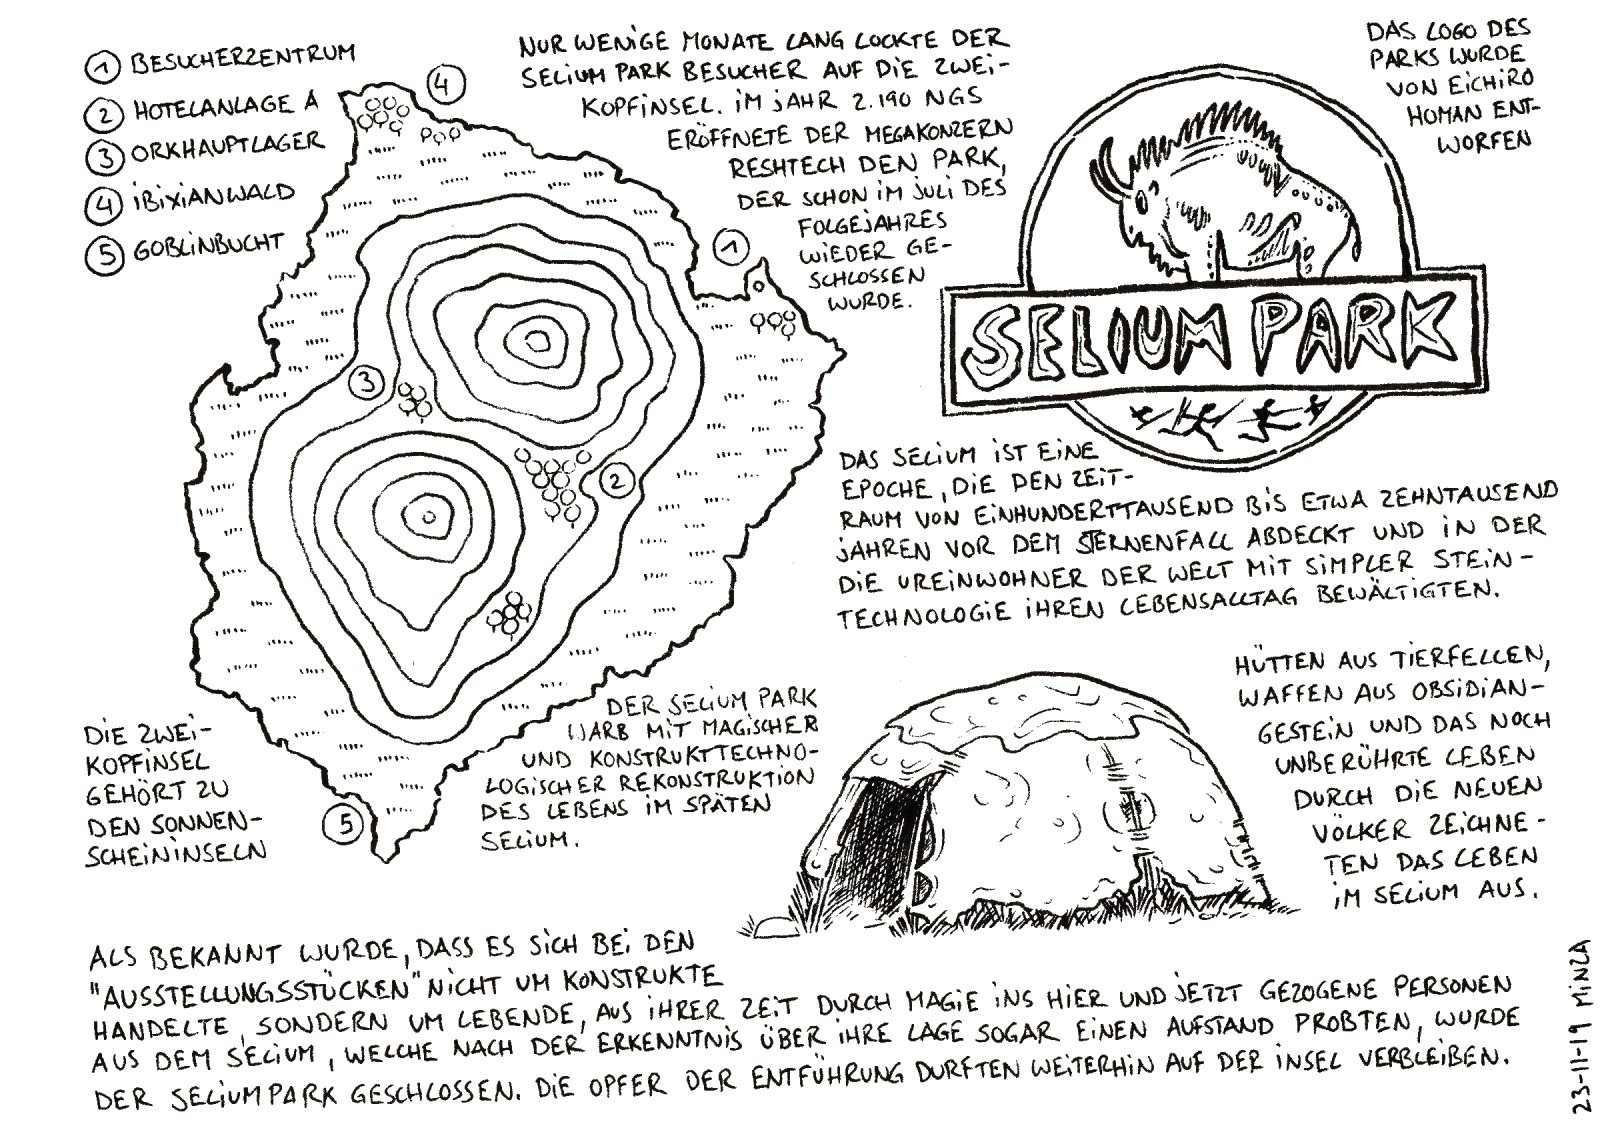 1 BESUCHERZENTRUM
2 HOTELANLAGE A
3 ORKHAUPTLAGER
4 IBIXIANWALD
5 GOBLINBUCHT
NUR WENIGE MONATE LANG LOCKTE DER
SELIUM PARK BESUCHER AUF DIE ZWEI-
KOPFINSEL. IM JAHR 2.190 NGS
ERÖFFNETE DER MEGAKONZERN
RESHTECH DEN PARK,
DER SCHON IM JULI DES
FOLGEJAHRES
WIEDER GE-
SCHLOSSEN
WURDE.
DAS LOGO DES
PARKS WURDE
VON EICHIRO
HOMAN ENT-
WORFEN
SELIUM PARK
4
1
3
2
5
DAS SELIUM IST EINE
EPOCHE, DIE DEN ZEIT-
RAUM VON EINHUNDERTTAUSEND BIS ETWA ZEHNTAUSEND
JAHREN VOR DEM STERNENFALL ABDECKT UND IN DER
DIE UREINWOHNER DER WELT MIT SIMPLER STEIN-
TECHNOLOGIE IHREN LEBENSALLTAG BEWÄLTIGTEN.
HÜTTEN AUS TIERFELLEN,
WAFFEN AUS OBSIDIAN-
GESTEIN UND DAS NOCH
UNBERÜHRTE LEBEN
DURCH DIE NEUEN
VÖLKER ZEICHNE-
TEN DAS LEBEN
IM SELIUM AUS.
DER SELIUM PARK
WARB MIT MAGISCHER
UND KONSTRUKTTECHNO-
LOGISCHER REKONSTRUKTION
DES LEBENS IM SPÄTEN
SELIUM.
DIE ZWEI-
KOPFINSEL
GEHÖRT ZU
DEN SONNEN-
SCHEININSELN
ALS BEKANNT WURDE, DASS ES SICH BEI DEN
"AUSSTELLUNGSSTÜCKEN" NICHT UM KONSTRUKTE
HANDELTE, SONDERN UM LEBENDE, AUS IHRER ZEIT DURCH MAGIE INS HIER UND JETZT GEZOGENE PERSONEN
AUS DEM SELIUM, WELCHE NACH DER ERKENNTNIS ÜBER IHRE LAGE SOGAR EINEN AUFSTAND PROBTEN, WURDE
DER SELIUMPARK GESCHLOSSEN. DIE OPFER DER ENTFÜHRUNG DURFTEN WEITERHIN AUF DER INSEL VERBLEIBEN.
23-11-19 MINZA